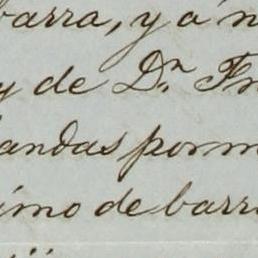 barra, y a n
y de Dn Fr
andas por m
imo de barr